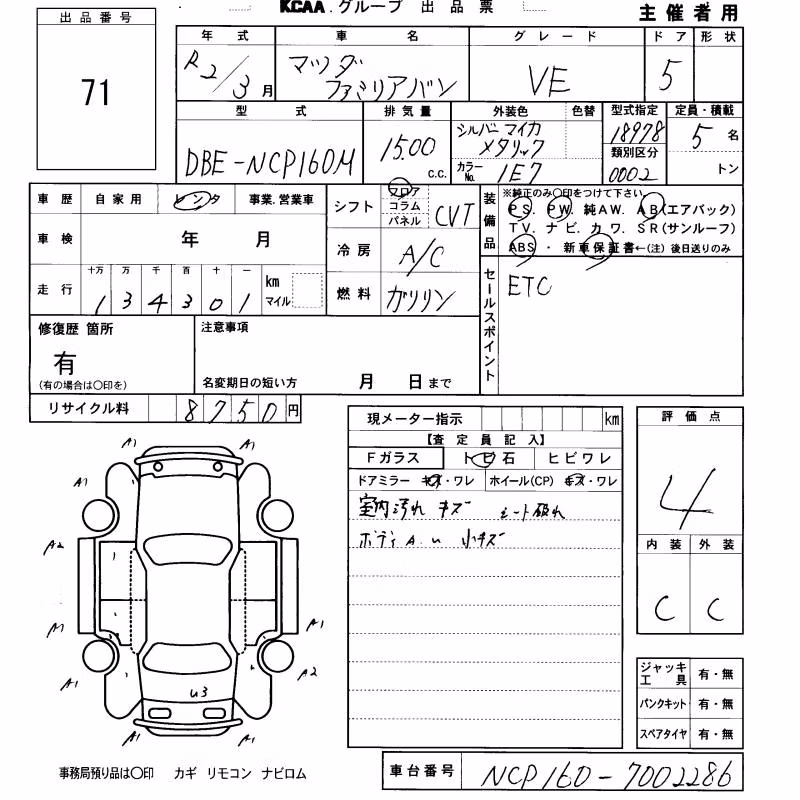 KCAA.グループ 出品票
主催者用
出品番号
71
年式 車名 グレード ドア 形状
R2/3月 マツダ ファミリアバン VE 5
型式 排気量 外装色 色替 型式指定 定員・積載
DBE-NCP160M 1500 c.c. シルバーマイカメタリック 18978 5名
カラーNo. 1E7 類別区分 0002 トン
車歴 自家用 レンタ 事業.営業車
車検 年 月
走行 十万 万 千 百 十 一 km マイル
1 3 4 3 0 1
シフト フロア コラム パネル CVT
冷房 A/C
燃料 ガソリン
装備品 ※純正のみ○印をつけて下さい
PS. PW. 純AW. AB(エアバック)
TV. ナビ. カワ. SR(サンルーフ)
ABS ・ 新車保証書←(注) 後日送りのみ
セールスポイント ETC
修復歴 箇所
有
(有の場合は○印を)
注意事項
名変期日の短い方 月 日まで
リサイクル料 8750円
現メーター指示 km
【査定員記入】
Fガラス トビ石 ヒビワレ
ドアミラー キズ・ワレ ホイール(CP) キズ・ワレ
室内汚れ キズ シート破れ
ボディA.U 小キズ
評価点
4
内装 外装
C C
A1 A1
A1
A2
A1 A1
A1 A2
U3
A1 A1
ジャッキ工具 有・無
パンクキット 有・無
スペアタイヤ 有・無
事務局預り品は○印 カギ リモコン ナビロム
車台番号 NCP160-7002286